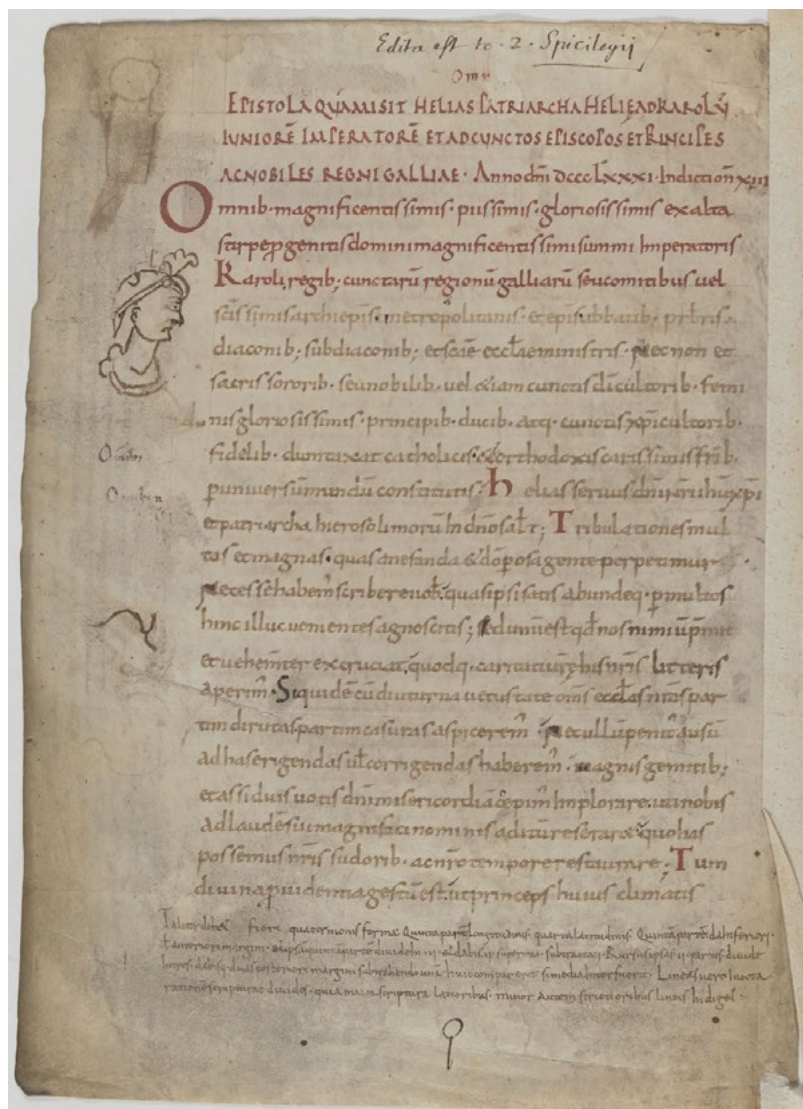 Edita est to. 2. Spicilegij
Omn
EPISTOLA QUA MISIT HELIAS PATRIARCHA HELIE AD KAROLŪ
IUNIORĒ IMPERATORĒ ET AD CUNCTOS EPISCOPOS ET PRINCIPES
AC NOBILES REGNI GALLIAE · Anno dn̄i dccclxxxi · Indiction̄ xiii
Omnib· magnificentissimis · piissimis · gloriosissimis ex alta
stirpe progenitis domini magnificentissimi summi Imperatoris
Karoli, regib; cunctarū regionū galliarū seu comitibus vel
sc̄issimis archiep̄is · metropolitanis · et ep̄is abbatib· prb̄ris ·
diaconib; subdiaconib; et sc̄ae eccl̄ae ministris · Nec non et
sacris sororib· seu nobilib· vel &iam cunctis di cultorib· femi
nis gloriosissimis · principib· ducib· atq· cunctis xp̄icultorib·
fidelib· dumtaxat catholicis · & orthodoxis carissimis fr̄ib·
p universū mundū constitutis · Helias servus dn̄i
et patriarcha hierosolimorū In dn̄o sal̄t; Tribulationes mul
tas et magnas · quas a nefanda & dō posagente perpetimur
Necesse habem̄ scribere vob̄· quas ipsi satis abundeq· p multos
hinc illuc venientes agnoscitis; Sed unū est qd̄ nos nimiū p̄mit
et vehem̄ter excruciat, quodq· caritati vr̄ę his nr̄is litteris
aperim̄ · Siquidē cū diuturna vetustate om̄s eccl̄as nr̄as par
tim dirutas partim casuras aspicerem̄ · Nec ullū penit̄ ausū
ad has erigendas ul̄ corrigendas haberem̄ · magnis gemitib;
et assiduis votis dn̄i misericordiā cępim̄ Implorare, ut nobis
ad laudē sui magnifici nominis aditū reserar& quo has
possemus nr̄is sudorib· ac nr̄o tempore restaurare · Tum
divina p̄videntia gestū est, ut princeps huius climatis
quaternionis forma Quinta parte longitudinis · quarta latitudinis · Quintā partē da Inferiori